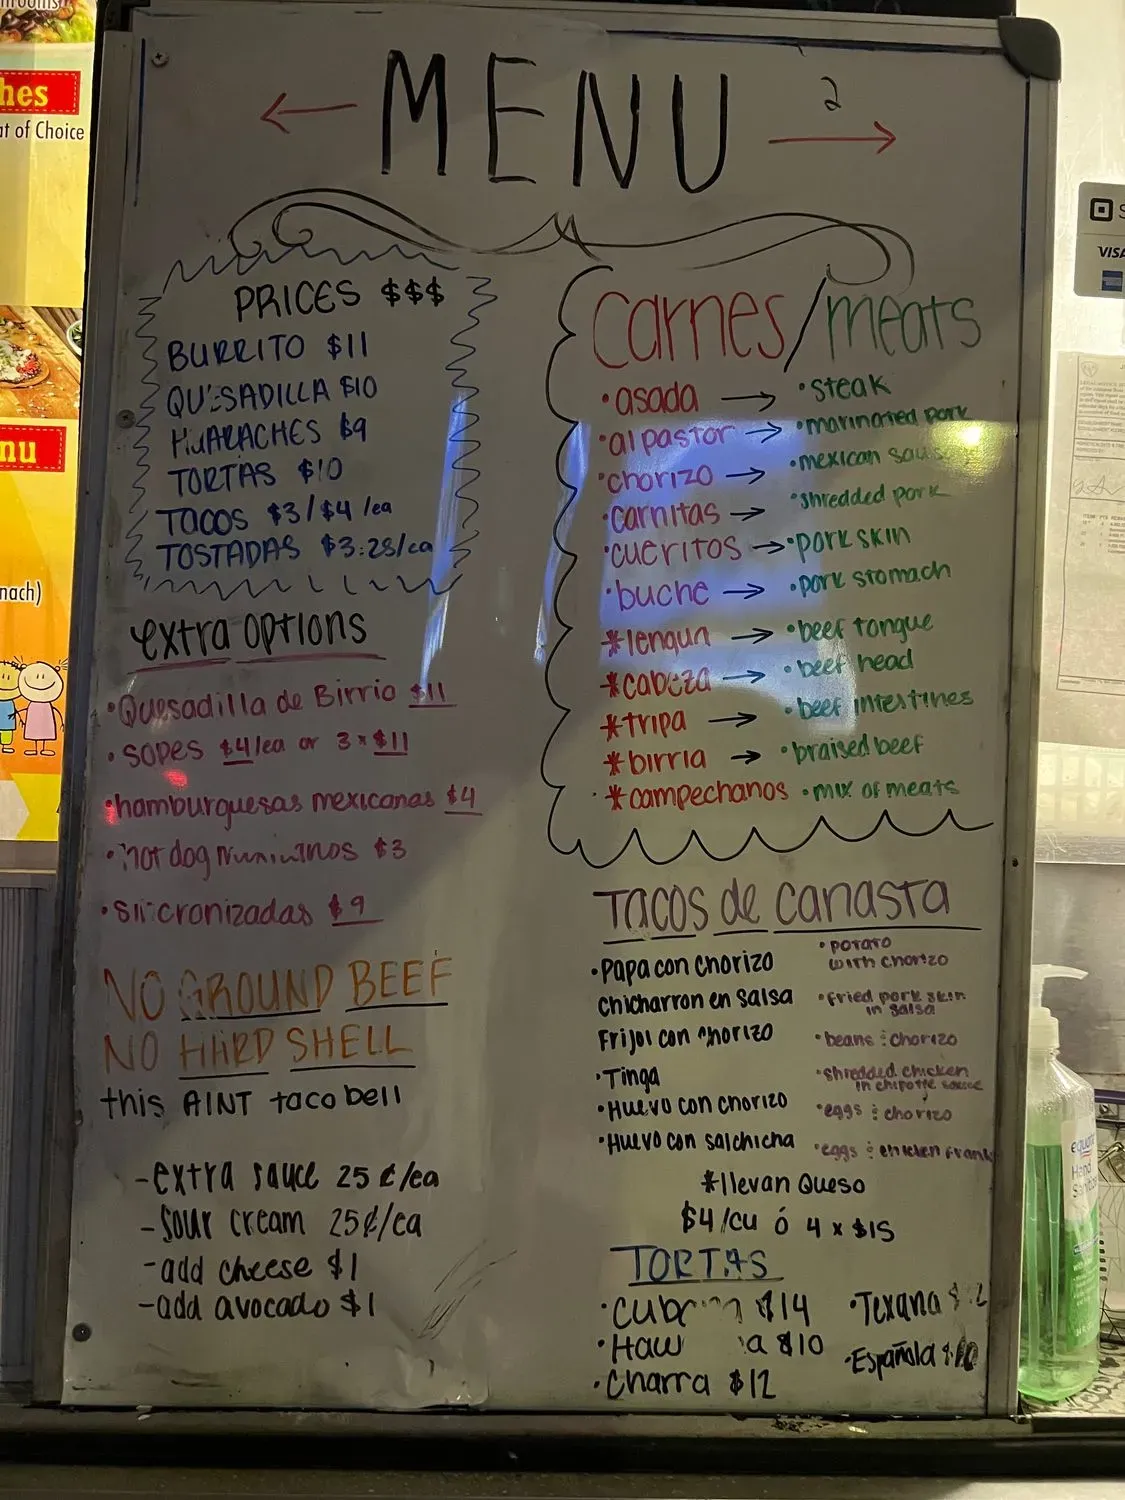 MENU
2
PRICES $$$
BURRITO $11
QUESADILLA $10
HUARACHES $9
TORTAS $10
TACOS $3/$4/ea
TOSTADAS $3.25/ea
extra options
•Quesadilla de Birria $11
•sopes $4/ea or 3 × $11
•hamburguesas mexicanas $4
•hot dog $3
•sincronizadas $9
NO GROUND BEEF
NO HARD SHELL
this AINT taco bell
-extra sauce 25¢/ea
-sour cream 25¢/ea
-add cheese $1
-add avocado $1
Carnes/meats
•asada → •steak
•al pastor → •marinated pork
•chorizo → •mexican
•carnitas → •shredded pork
•cueritos → •pork skin
•buche → •pork stomach
*lengua → •beef tongue
*cabeza → •beef head
*tripa → •beef intestines
*birria → •braised beef
*campechanos •mix of meats
TACOS de canasta
•Papa con chorizo •potato with chorizo
chicharron en salsa •fried pork skin in salsa
Frijol con chorizo •beans & chorizo
•Tinga •shredded chicken in chipotle sauce
•Huevo con chorizo •eggs & chorizo
•Huevo con salchicha •eggs & chicken frank
*llevan queso
$4/cu ó 4 x $15
TORTAS
•Cubana $14 •Texana
•Haw a $10 •Española
•Charra $12
hes
at of Choice
nu
nach)
VISA
Hand